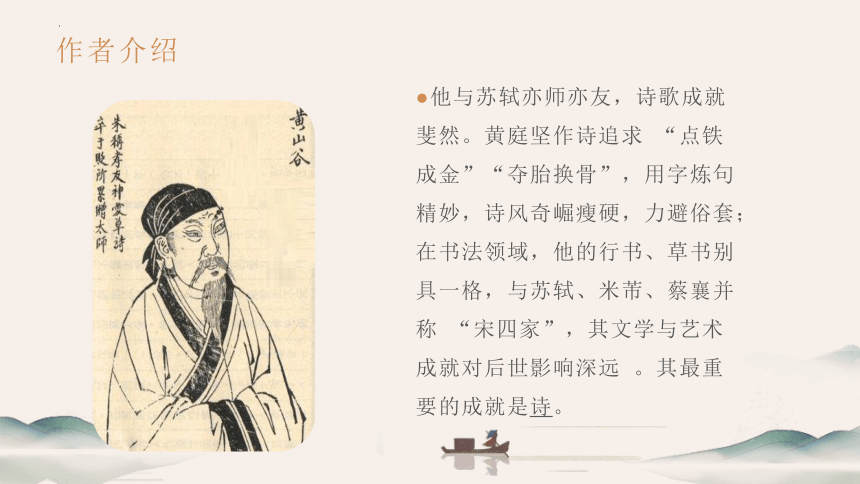 作者介绍
黄山谷
朱称孝友神爱草诗
卒于贬所累赠太师
●他与苏轼亦师亦友，诗歌成就
斐然。黄庭坚作诗追求 “点铁
成金”“夺胎换骨”，用字炼句
精妙，诗风奇崛瘦硬，力避俗套；
在书法领域，他的行书、草书别
具一格，与苏轼、米芾、蔡襄并
称 “宋四家”，其文学与艺术
成就对后世影响深远 。其最重
要的成就是诗。